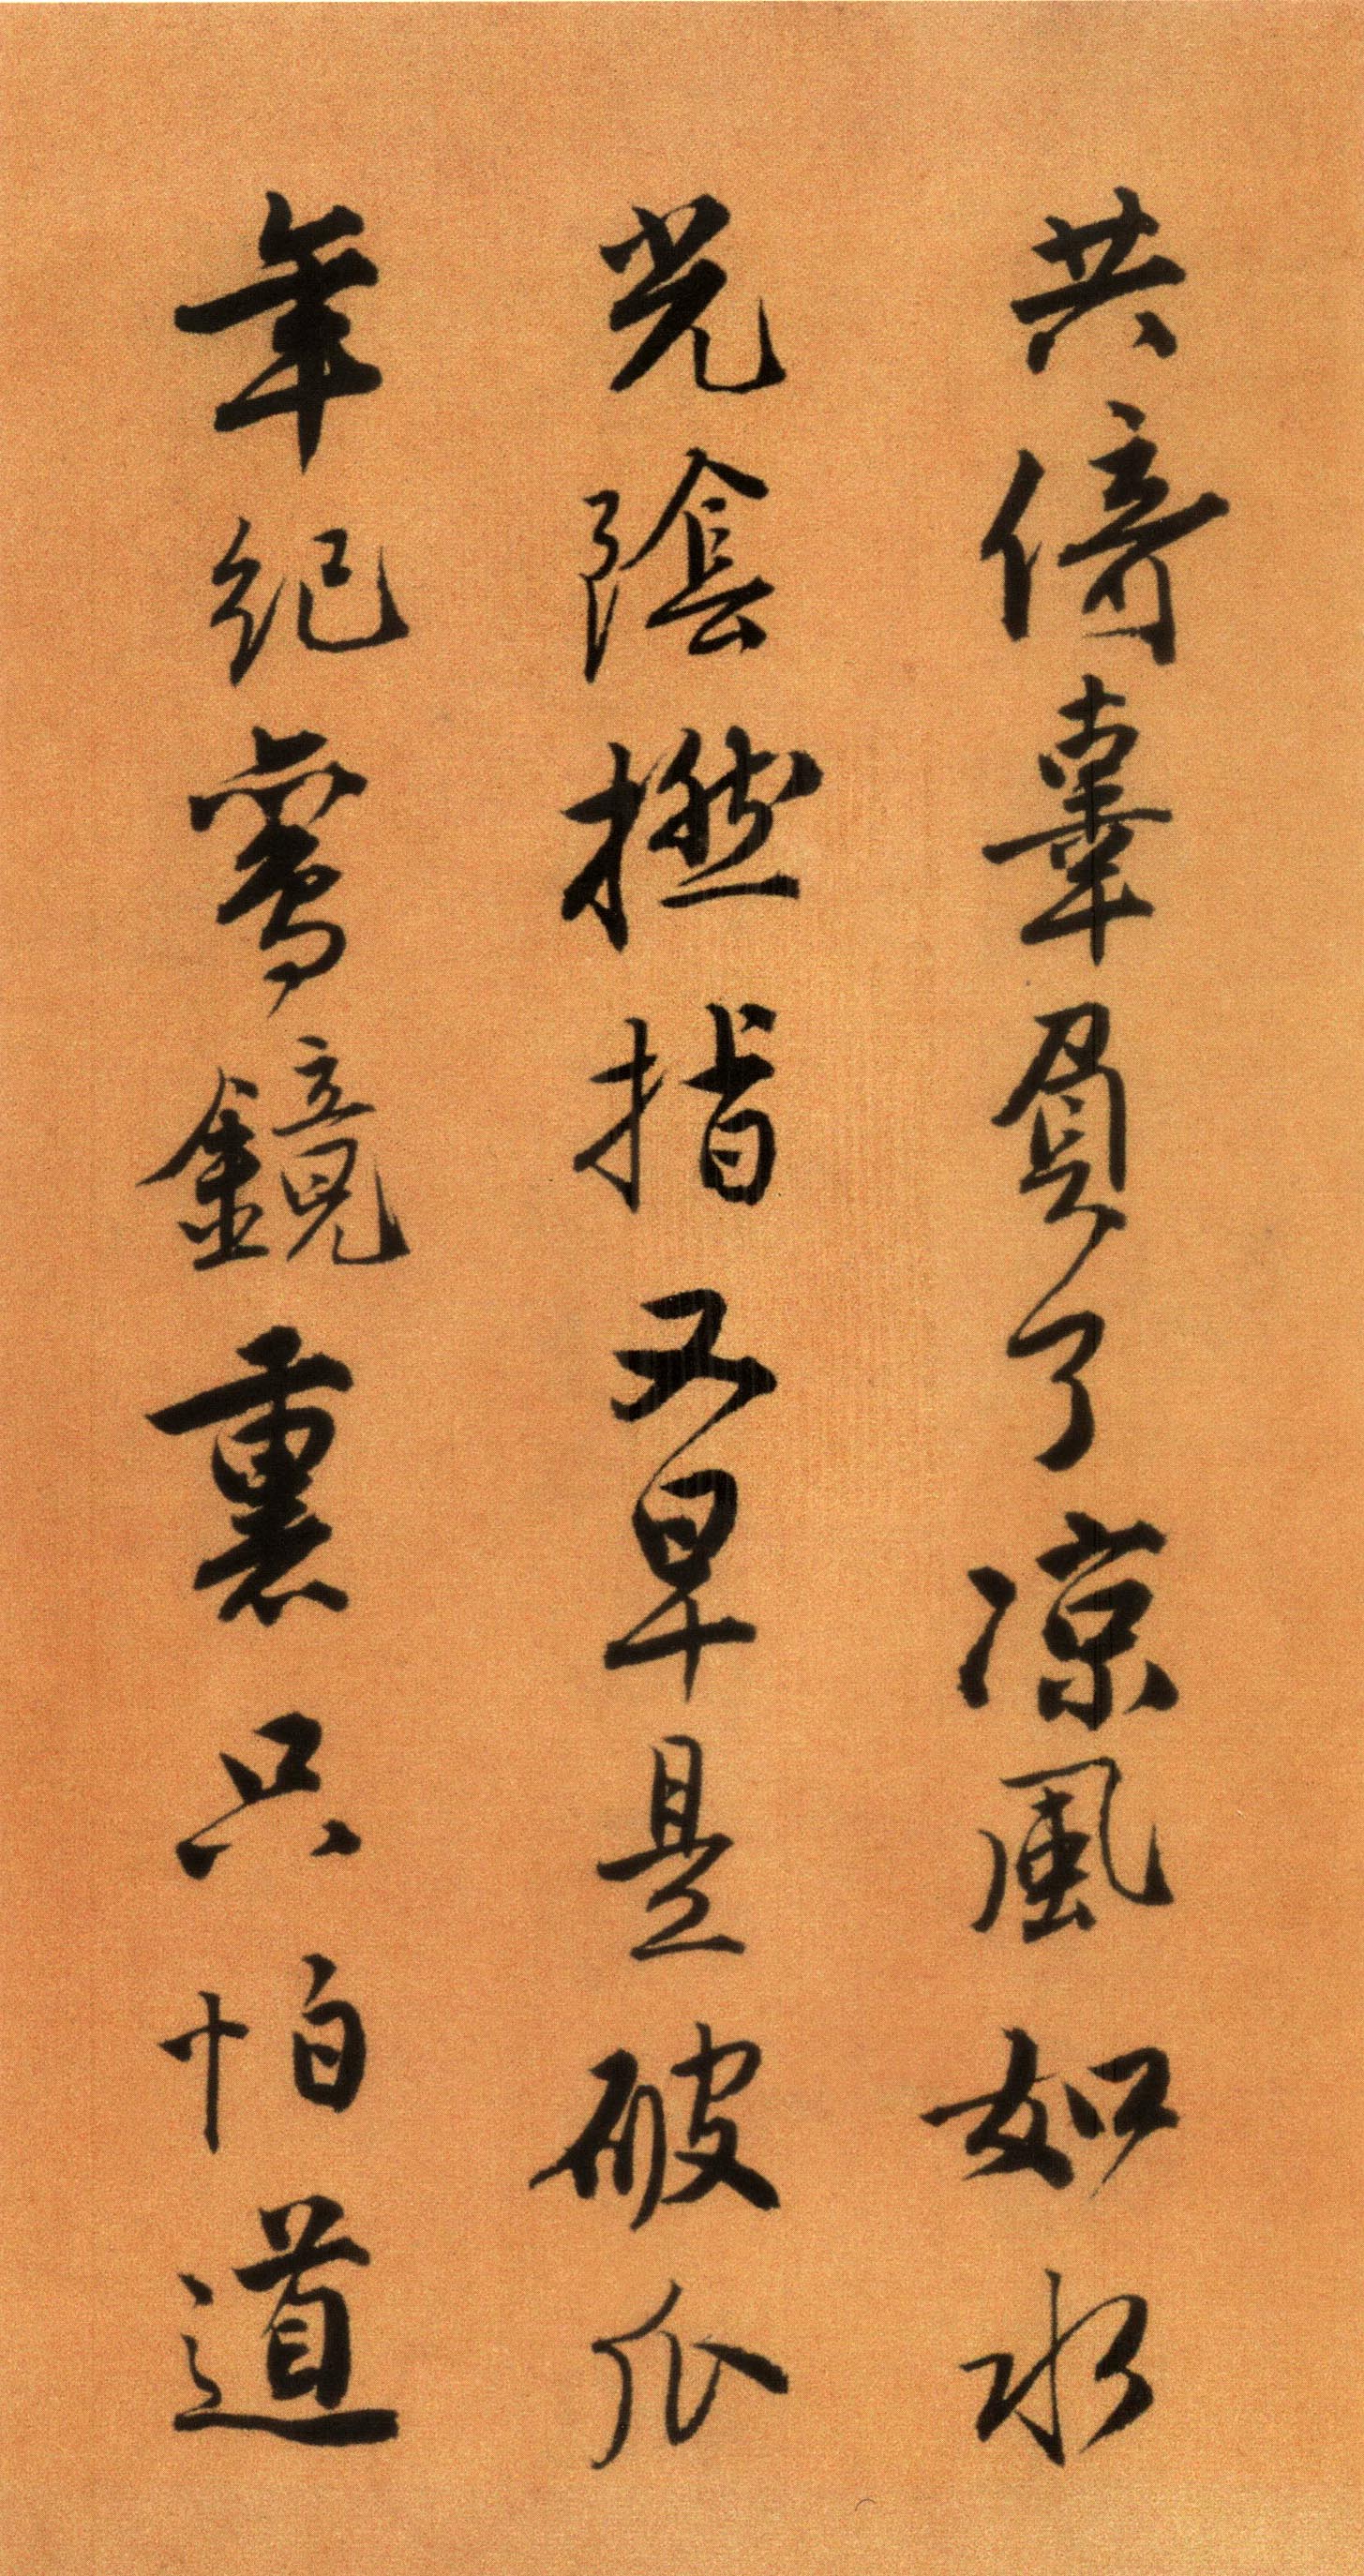 共倚辜負了涼風如水
光陰撚指又早是破瓜
年紀鸞鏡裏只怕道